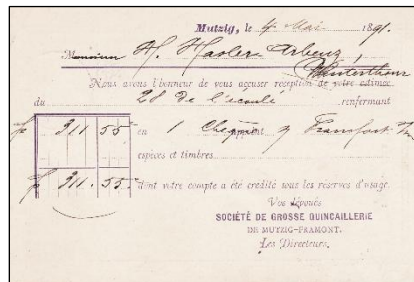 Mutzig, le 4 Mai 1891.
Monsieur H. Hasler-Arbenz,
Winterthour
Nous avons l'honneur de vous accuser réception de votre estimée
du 28 de l'écoulé renfermant
f 311 55 en 1 Chèque Francfort
espèces et timbres
f 311. 55. dont votre compte a été crédité sous les réserves d'usage.
Vos dévoués
SOCIÉTÉ DE GROSSE QUINCAILLERIE
DE MUTZIG-FRAMONT.
Les Directeurs.